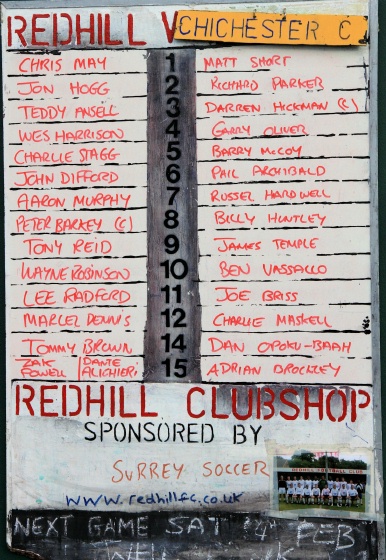 REDHILL V CHICHESTER C
CHRIS MAY 1 MATT SHORT
JON HOGG 2 RICHARD PARKER
TEDDY ANSELL 3 DARREN HICKMAN (C)
WES HARRISON 4 GARRY OLIVER
CHARLIE STAGG 5 BARRY McCOY
JOHN DIFFORD 6 PAIL ARCHIBALD
AARON MURPHY 7 RUSSEL HARDWELL
PETER BARKEY (C) 8 BILLY HUNTLEY
TONY REID 9 JAMES TEMPLE
WAYNE ROBINSON 10 BEN VASSALLO
LEE RADFORD 11 JOE BRISS
MARCEL DENNIS 12 CHARLIE MASKELL
TOMMY BROWN 14 DAN OPOKU-BAAH
ZAK POWELL / DANTE ALIGHIERI 15 ADRIAN DROCKLEY
REDHILL CLUBSHOP
SPONSORED BY
SURREY SOCCER
www.redhillfc.co.uk
REDHILL FOOTBALL CLUB
NEXT GAME SAT 4 FEB